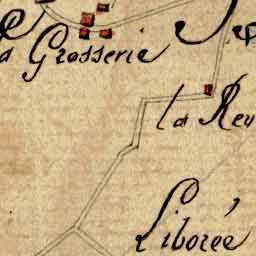 a Grosserie
la Rev
Liborée